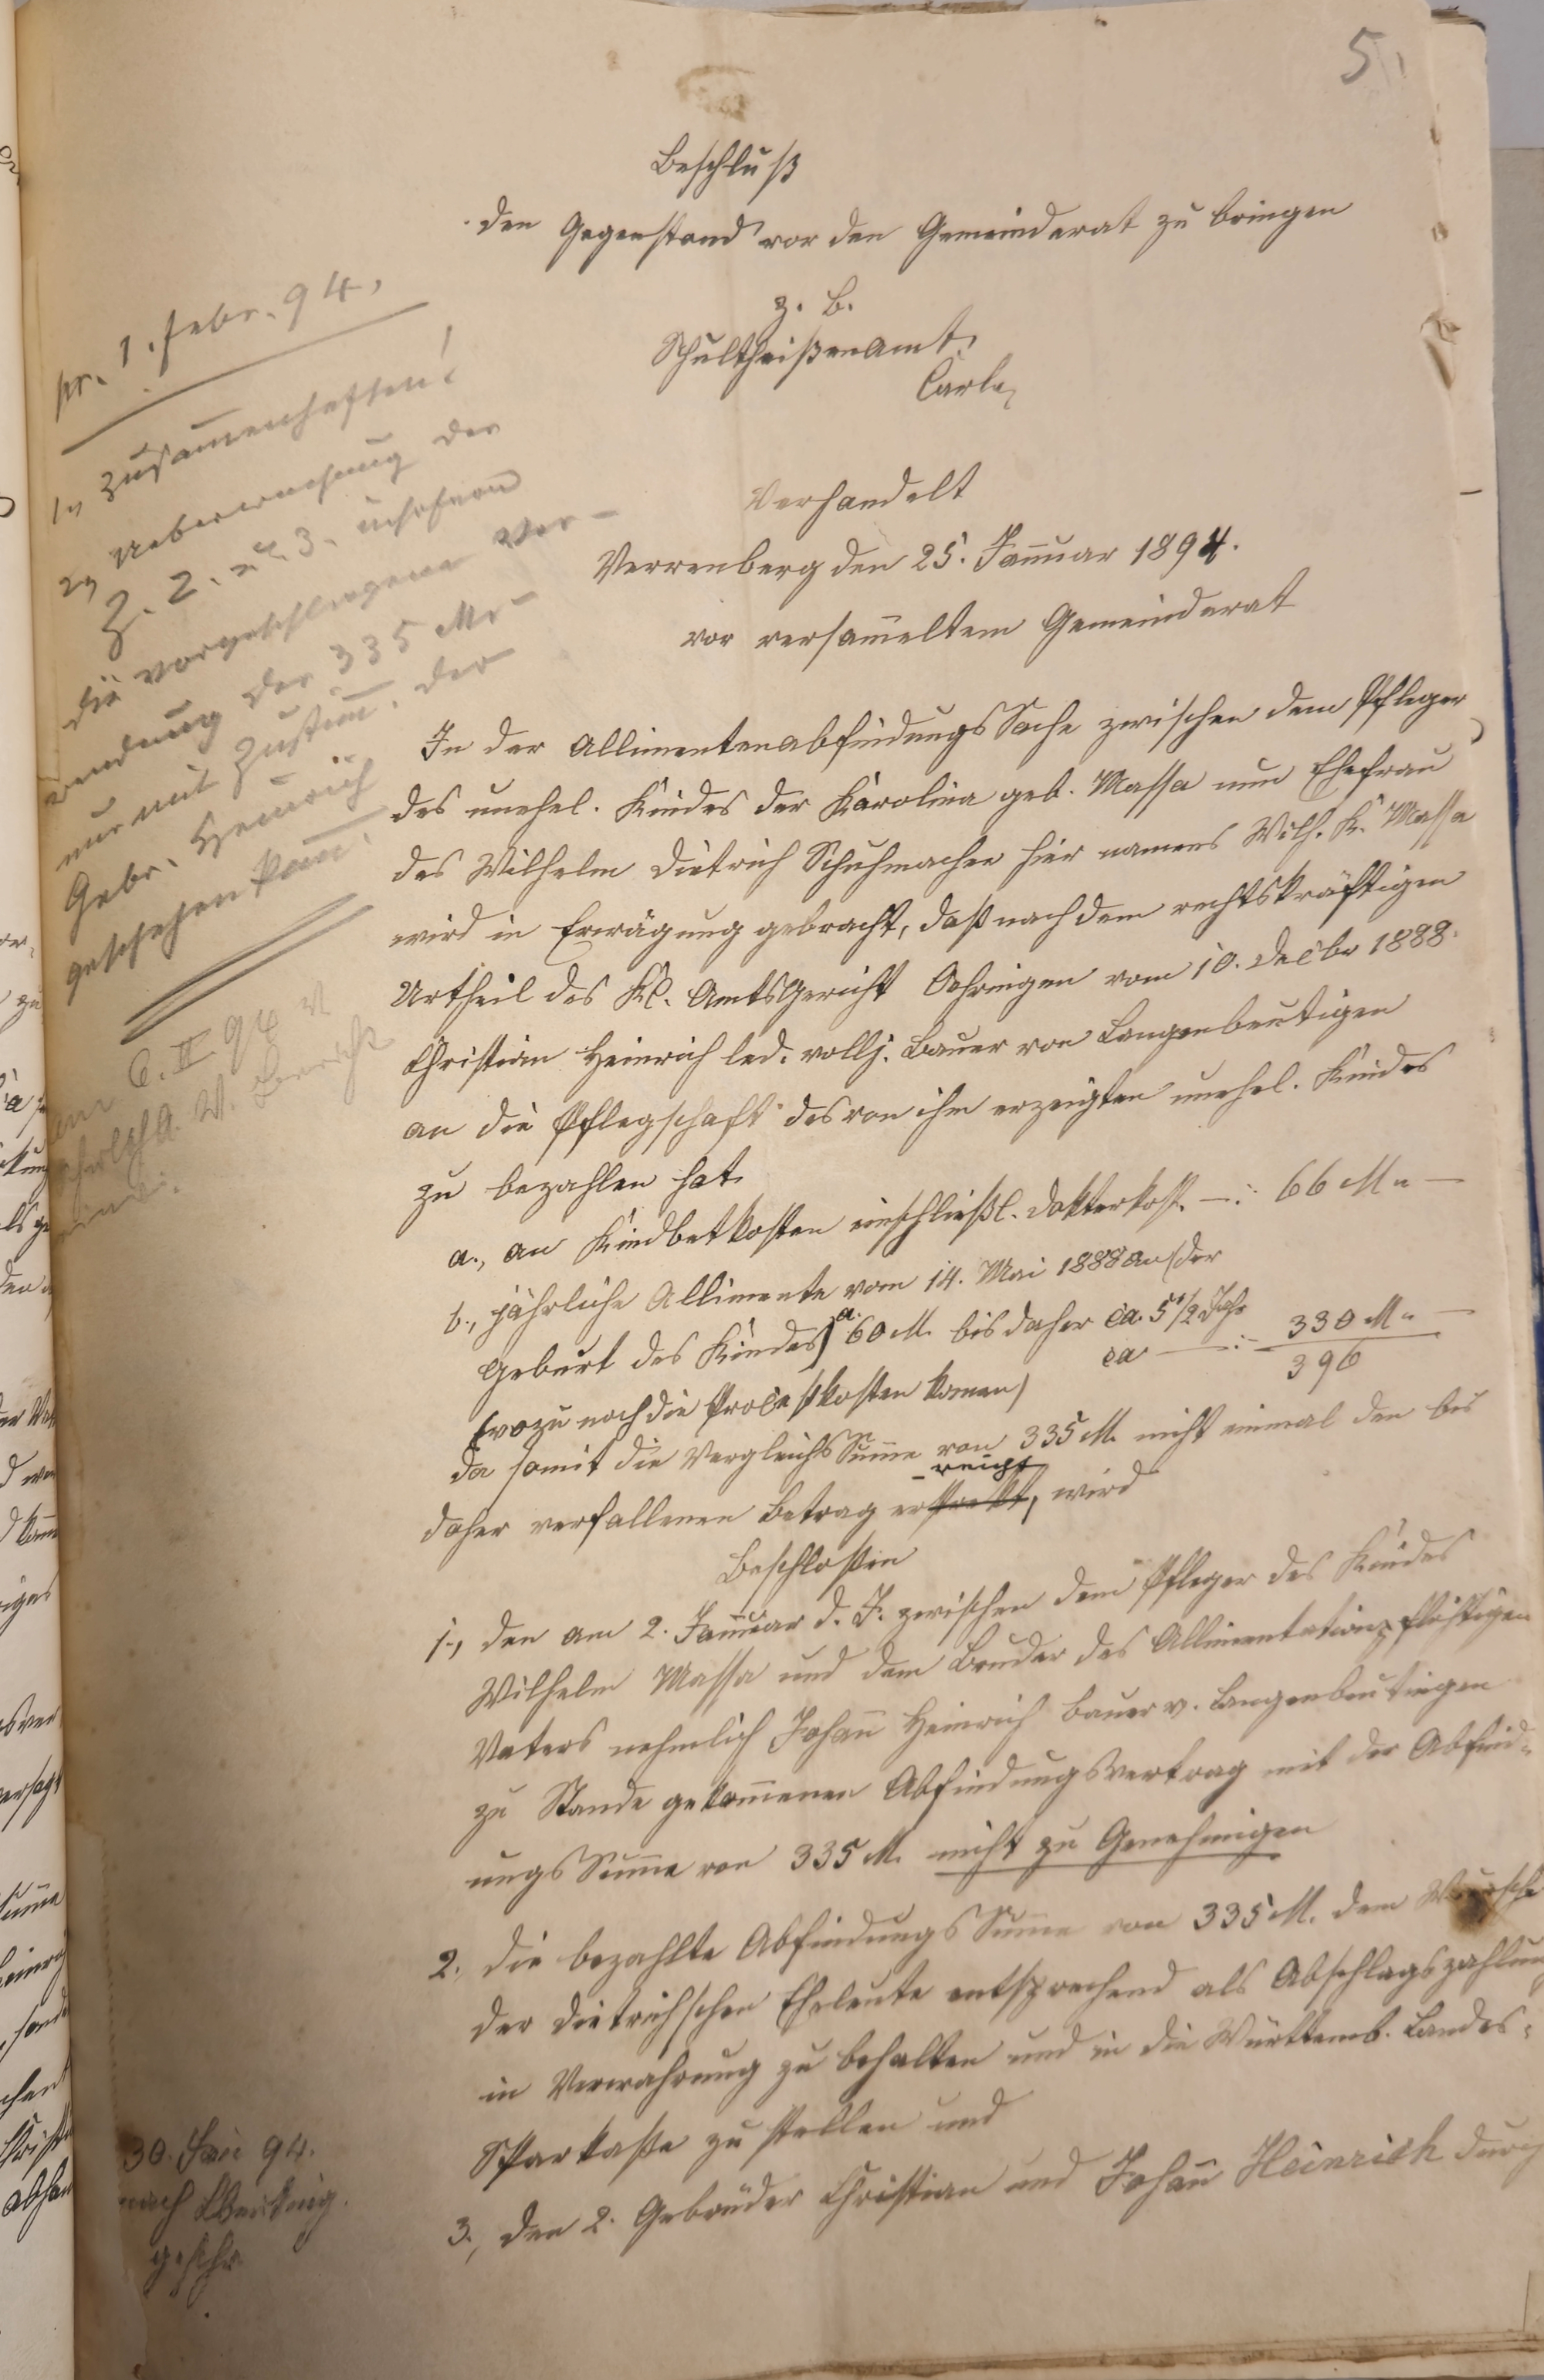 5.
Beschluß
den Gegenstand vor den Gemeinderat zu bringen
z. B.
Schultheißenamt.
Carle
Verhandelt
Verrenberg den 25. Januar 1894.
vor versam̄eltem Gemeinderat
In der Allimentenabfindungs Sache zwischen dem Pfleger
des unehel. Kindes der Karolina geb. Massa nun Ehefrau
des Wilhelm Dietrich Schuhmacher hier namens Wilh. K. Massa
wird in Erwägung gebracht, daß nach dem rechtskräftigen
Urtheil des Kl. Amtsgericht Oehringen vom 10. Decbr 1888.
Christian Heinrich led. vollj. Bauer von Langenbeutigen
an die Pflegschaft des von ihm erzeugten unehel. Kindes
zu bezahlen hat.
a., an Kindbetkosten einschließl. Dokterkost. —:. 66 M. —
b., jährliche Allimente vom 14. Mai 1888 an (der
Geburt des Kindes) a. 60 M. bis daher ca. 5 1/2 Jahr
ca —:. 330 M. —
396
(wozu noch die Proceßkosten kom̄en)
da somit die Vergleichs Sum̄e von 335 M. nicht einmal den bis
daher verfallenen Betrag erreicht, wird
Beschloßen
1., den am 2. Januar d. J. zwischen dem Pfleger des Kindes
Wilhelm Massa und dem Bruder des Allimentationspflichtigen
Vaters nehmlich Johan̄ Heinrich Bauer v. Langenbeutingen
zu Stande gekom̄enen Abfindungsvertrag mit der Abfind-
ungs Sum̄e von 335 M. nicht zu Genehmigen
2., die bezahlte Abfindungs Sum̄e von 335 M. dem Wunsche
der Dietrichschen Eheleute entsprechend als Abschlagszahlung
in Verwahrung zu behalten und in die Württemb. Landes-
Sparkaße zu stellen und
3., den 2. Gebrüder Christian und Johan̄ Heinrich durch
pr. 1. Febr. 94.
1., Zusam̄enheften!
2., Ueberwachung der
Z. 2. u. 3. insofern
die vorgeschlagene Ver-
wendung der 335 M. —
nur mit Zustim̄. der
Gebr. Heinrich
geschehen kan̄.
6. II 94
Bericht
30. Jan 94.
nach